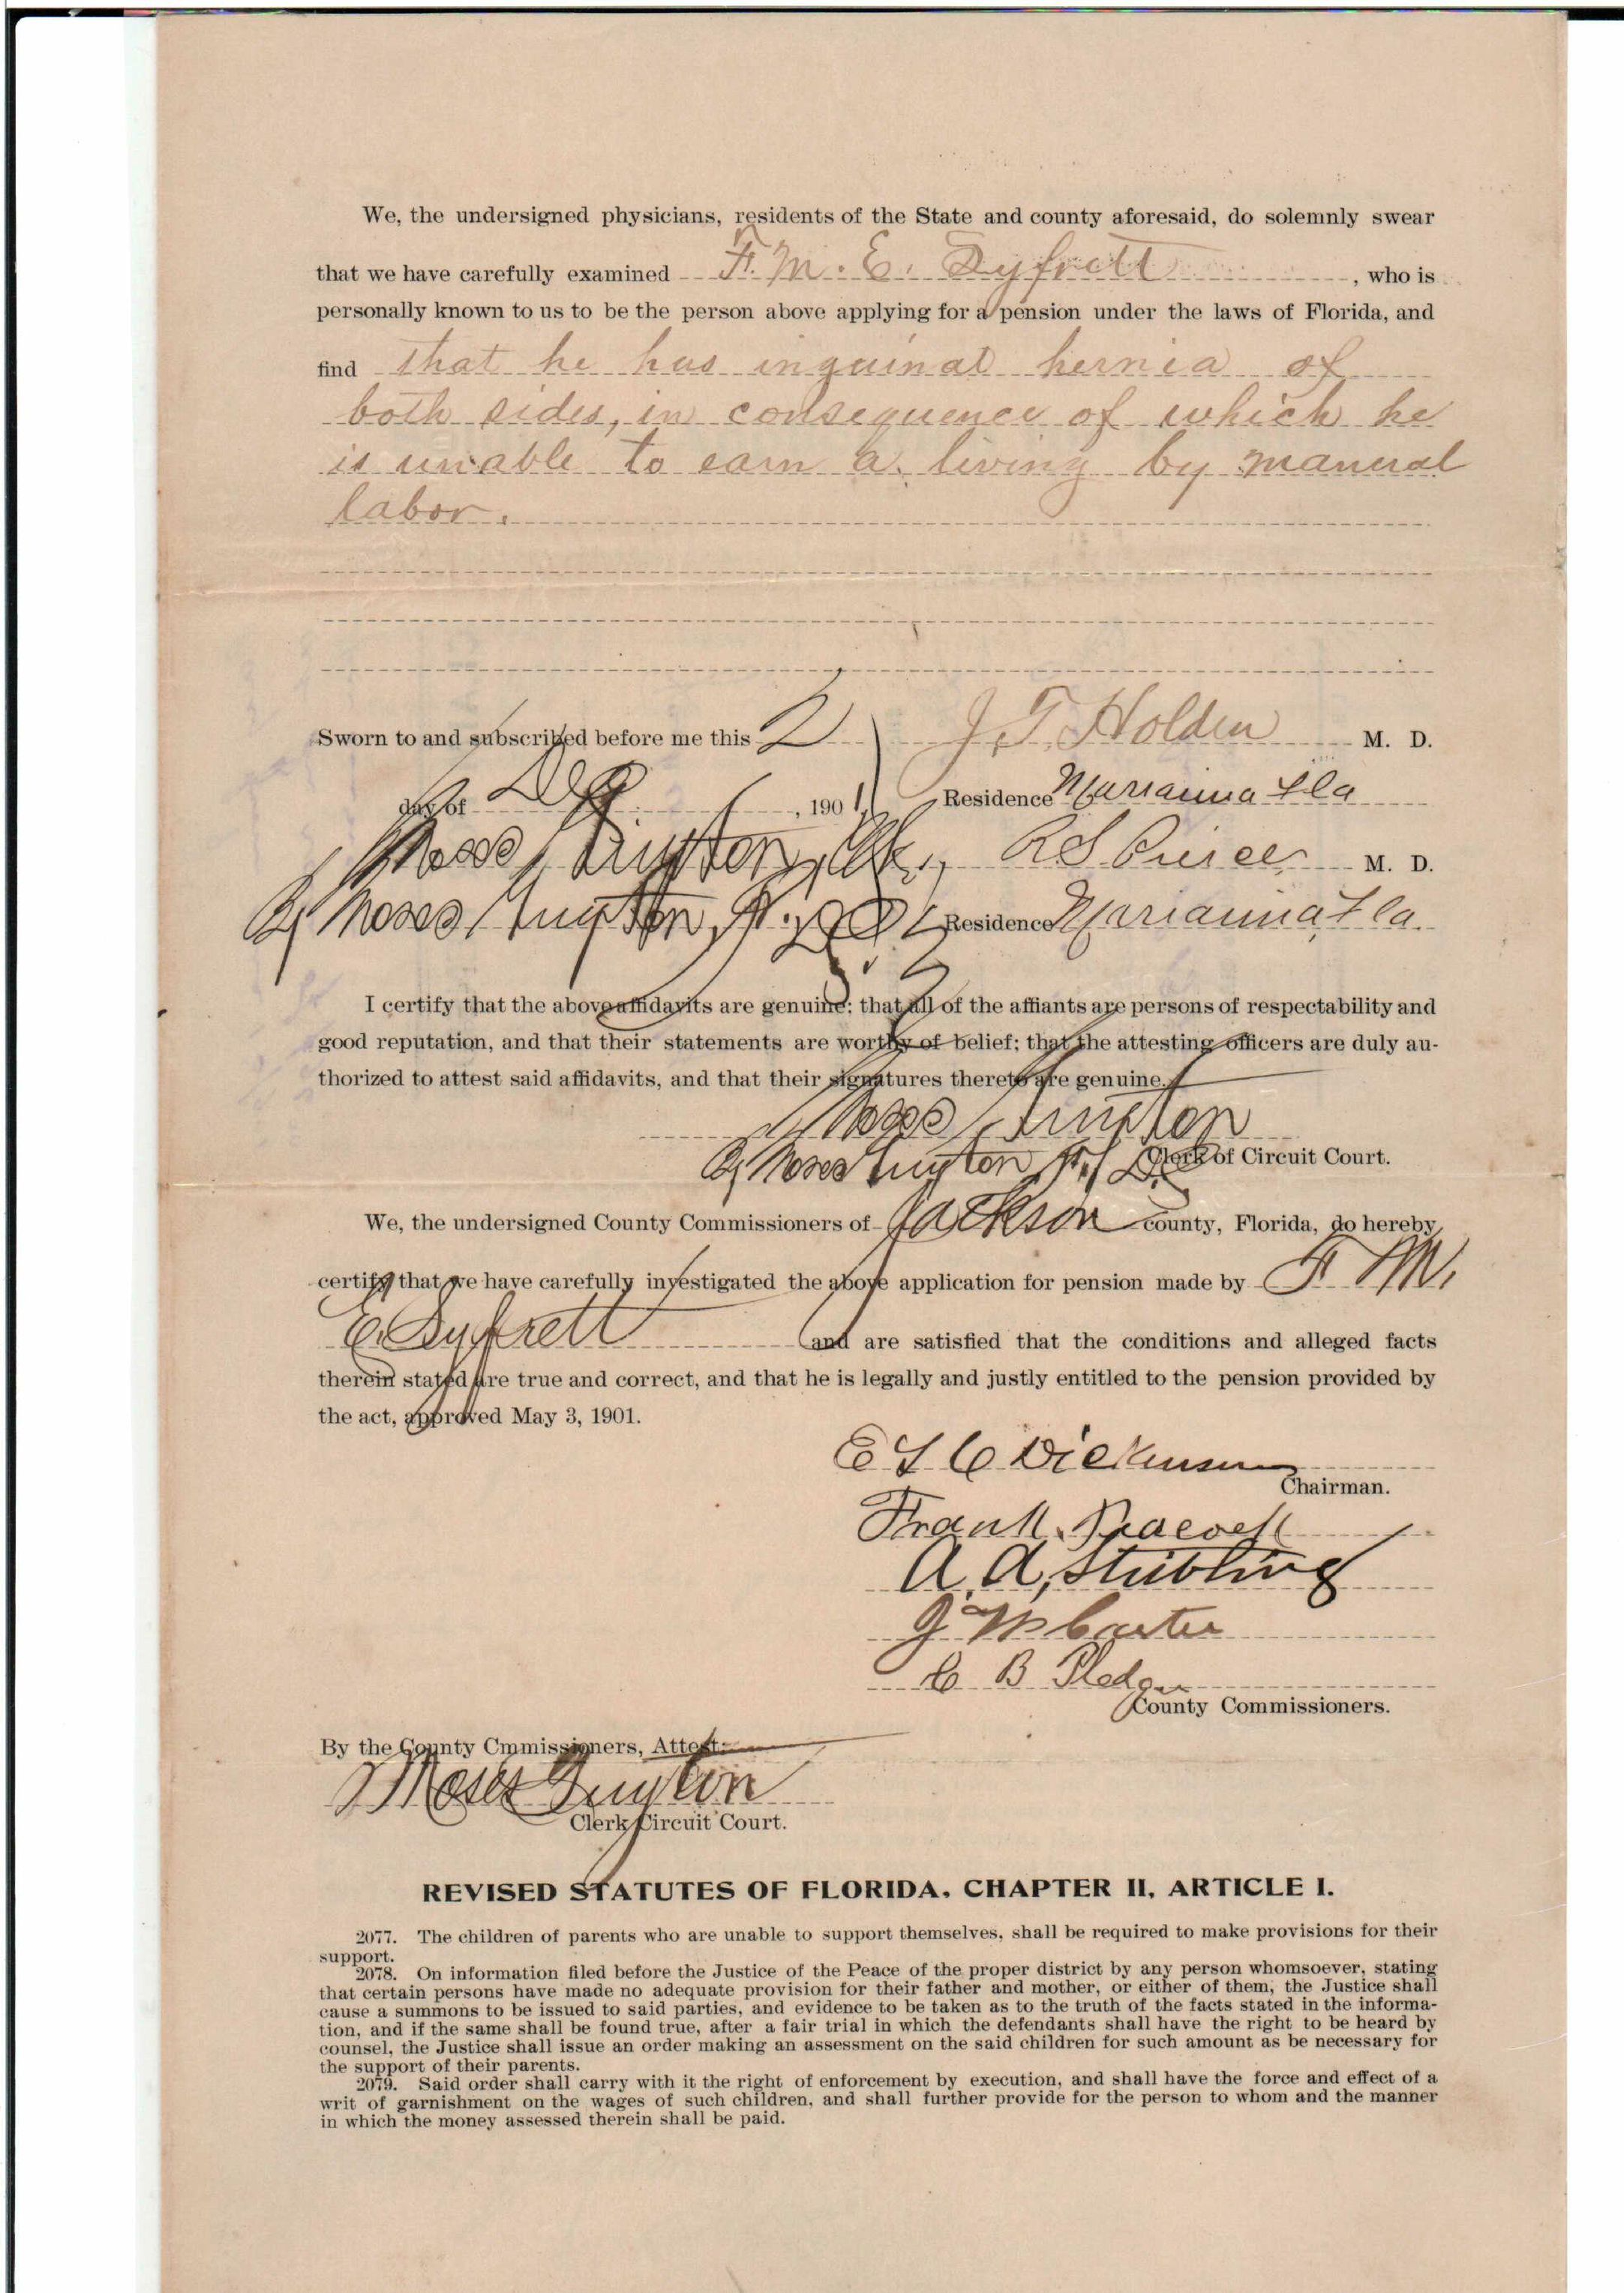 We, the undersigned physicians, residents of the State and county aforesaid, do solemnly swear
that we have carefully examined F. M. E. Syfrett, who is
personally known to us to be the person above applying for a pension under the laws of Florida, and
find that he has inguinal hernia of
both sides, in consequence of which he
is unable to earn a living by manual
labor.
Sworn to and subscribed before me this 2 J. T. Holden M. D.
day of Dec, 1901 Residence Marianna Fla
Moses Guyton, Clk., R S Pierce M. D.
By Moses Guyton, Jr. D.C. Residence Marianna Fla.
I certify that the above affidavits are genuine; that all of the affiants are persons of respectability and
good reputation, and that their statements are worthy of belief; that the attesting officers are duly au-
thorized to attest said affidavits, and that their signatures thereto are genuine.
Moses Guyton
By Moses Guyton Jr. D.C. Clerk of Circuit Court.
We, the undersigned County Commissioners of Jackson county, Florida, do hereby
certify that we have carefully investigated the above application for pension made by F M.
E. Syfrett and are satisfied that the conditions and alleged facts
therein stated are true and correct, and that he is legally and justly entitled to the pension provided by
the act, approved May 3, 1901.
Dickenson
Chairman.
Frank Peacock
A. A. Stubbling
J W Carter
C B Pledger
County Commissioners.
By the County Cmmissioners, Attest:
Moses Guyton
Clerk Circuit Court.
REVISED STATUTES OF FLORIDA. CHAPTER II, ARTICLE I.
2077. The children of parents who are unable to support themselves, shall be required to make provisions for their
support.
2078. On information filed before the Justice of the Peace of the proper district by any person whomsoever, stating
that certain persons have made no adequate provision for their father and mother, or either of them, the Justice shall
cause a summons to be issued to said parties, and evidence to be taken as to the truth of the facts stated in the informa-
tion, and if the same shall be found true, after a fair trial in which the defendants shall have the right to be heard by
counsel, the Justice shall issue an order making an assessment on the said children for such amount as be necessary for
the support of their parents.
2079. Said order shall carry with it the right of enforcement by execution, and shall have the force and effect of a
writ of garnishment on the wages of such children, and shall further provide for the person to whom and the manner
in which the money assessed therein shall be paid.